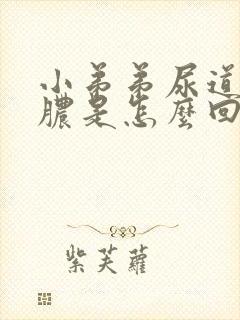 小弟弟尿道
膿是怎麼回
紫芙蘿